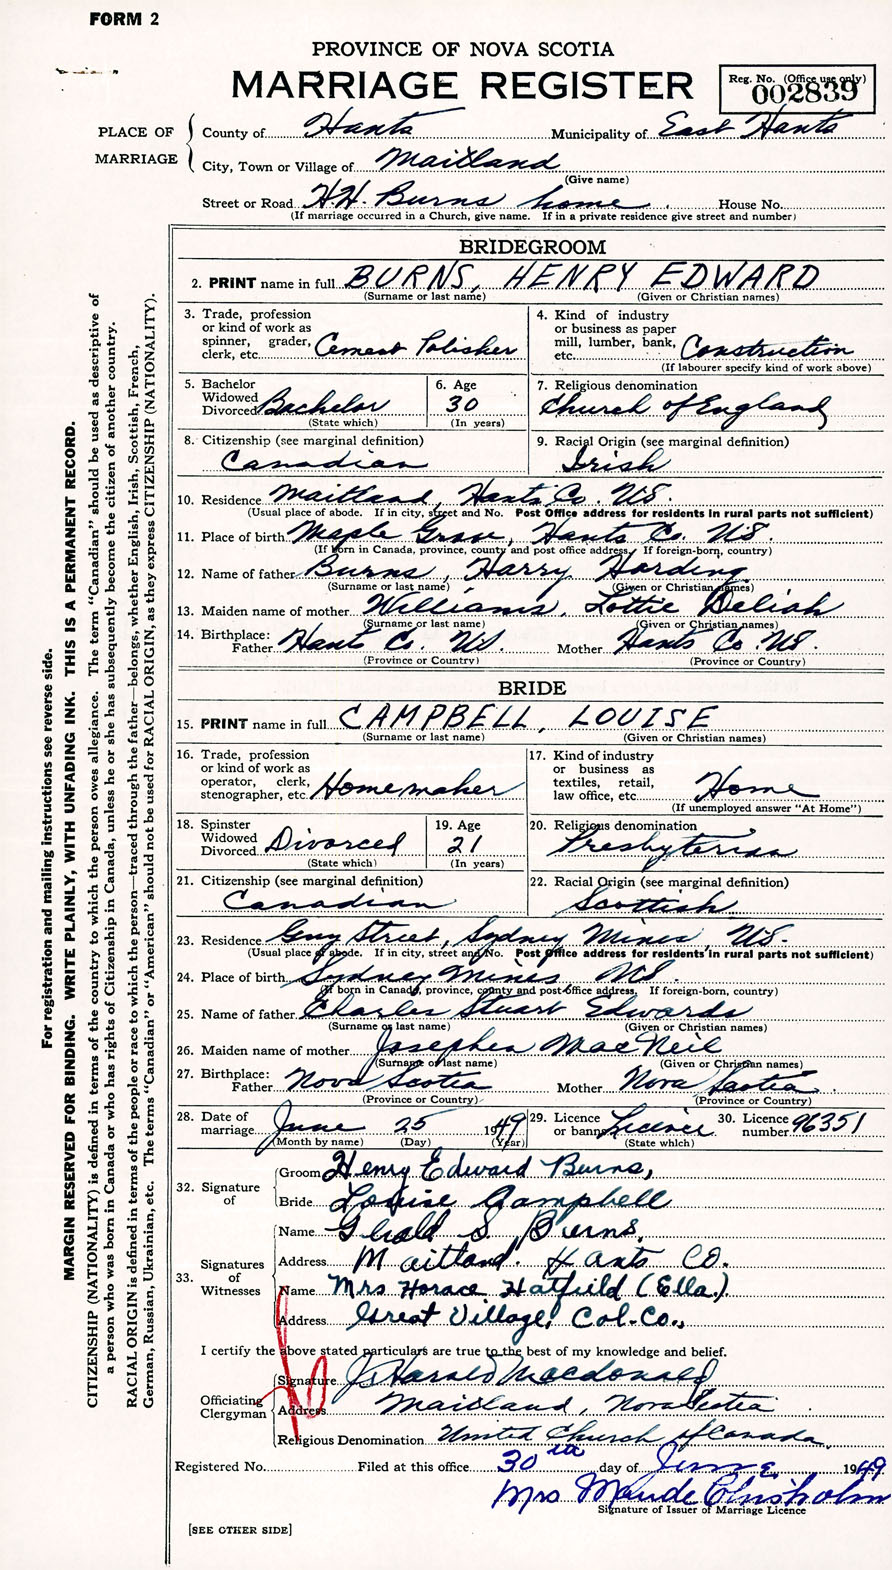 FORM 2
PROVINCE OF NOVA SCOTIA
MARRIAGE REGISTER
Reg. No. (Office use only)
002839
PLACE OF MARRIAGE
County of Hants Municipality of East Hants
City, Town or Village of Maitland
(Give name)
Street or Road H.H. Burns home. House No.
(If marriage occurred in a Church, give name. If in a private residence give street and number)
BRIDEGROOM
2. PRINT name in full BURNS, HENRY EDWARD
(Surname or last name) (Given or Christian names)
3. Trade, profession or kind of work as spinner, grader, clerk, etc. Cement Polisher
4. Kind of industry or business as paper mill, lumber, bank, etc. Construction
(If labourer specify kind of work above)
5. Bachelor Widowed Divorced Bachelor
(State which)
6. Age 30
(In years)
7. Religious denomination
Church of England
8. Citizenship (see marginal definition)
Canadian
9. Racial Origin (see marginal definition)
Irish
10. Residence Maitland, Hants Co. N.S.
(Usual place of abode. If in city, street and No. Post Office address for residents in rural parts not sufficient)
11. Place of birth Maple Grove, Hants Co. N.S.
(If born in Canada, province, county and post office address, If foreign-born, country)
12. Name of father Burns, Harry Harding
(Surname or last name) (Given or Christian names)
13. Maiden name of mother Williams, Lottie Deliah
(Surname or last name) (Given or Christian names)
14. Birthplace: Father Hants Co. N.S. Mother Hants Co. N.S.
(Province or Country) (Province or Country)
BRIDE
15. PRINT name in full CAMPBELL, LOUISE
(Surname or last name) (Given or Christian names)
16. Trade, profession or kind of work as operator, clerk, stenographer, etc. Homemaker
17. Kind of industry or business as textiles, retail, law office, etc. Home
(If unemployed answer "At Home")
18. Spinster Widowed Divorced Divorced
(State which)
19. Age 21
(In years)
20. Religious denomination
Presbyterian
21. Citizenship (see marginal definition)
Canadian
22. Racial Origin (see marginal definition)
Scottish
23. Residence Guy Street, Sydney Mines, N.S.
(Usual place of abode. If in city, street and No. Post Office address for residents in rural parts not sufficient)
24. Place of birth Sydney Mines N.S.
(If born in Canada, province, county and post office address, If foreign-born, country)
25. Name of father Charles Stuart Edwards
(Surname or last name) (Given or Christian names)
26. Maiden name of mother Josephen MacNeil
(Surname or last name) (Given or Christian names)
27. Birthplace: Father Nova Scotia Mother Nova Scotia
(Province or Country) (Province or Country)
28. Date of marriage June 25 1949
(Month by name) (Day) (Year)
29. Licence or banns Licence
(State which)
30. Licence number 96351
32. Signature of
Groom Henry Edward Burns,
Bride Louise Campbell
33. Signatures of Witnesses
Name Gerald S. Burns.
Address Maitland. Hants Co.
Name Mrs Horace Hatfield (Ella.)
Address Great Village, Col. Co.,
I certify the above stated particulars are true to the best of my knowledge and belief.
Officiating Clergyman
Signature J. Harald Macdonald
Address Maitland, Nova Scotia
Religious Denomination United Church of Canada.
Registered No. Filed at this office 30th day of June 1949
Mrs Maude Chisholm
Signature of Issuer of Marriage Licence
[SEE OTHER SIDE]
For registration and mailing instructions see reverse side.
MARGIN RESERVED FOR BINDING. WRITE PLAINLY, WITH UNFADING INK. THIS IS A PERMANENT RECORD.
CITIZENSHIP (NATIONALITY) is defined in terms of the country to which the person owes allegiance. The term "Canadian" should be used as descriptive of
a person who was born in Canada or who has rights of Citizenship in Canada, unless he or she has subsequently become the citizen of another country.
RACIAL ORIGIN is defined in terms of the people or race to which the person—traced through the father—belongs, whether English, Irish, Scottish, French,
German, Russian, Ukrainian, etc. The terms "Canadian" or "American" should not be used for RACIAL ORIGIN, as they express CITIZENSHIP (NATIONALITY).